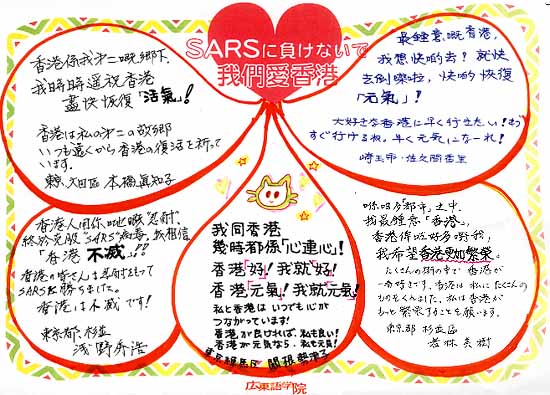 SARSに負けないで
我們愛香港
香港係我第二嘅鄉下
我時時遥祝香港
盡快恢復「活氣」!
香港は私の第二の故郷
いつも遠くから香港の復活を祈って
います。
東京大田区 本橋眞知子
最鍾意嘅香港,
我想快啲去! 就快
去倒嚟啦, 快啲恢復
「元氣」!
大好きな香港に早く行きたい!もう
すぐ行けるね。早く元気になーれ!
埼玉市・佐久間香里
香港人
終於克服"SARS"病毒, 我相信
「香港 不滅」!!
香港の皆さんは忍耐をもって
SARSに勝ちました。
香港は不滅です!
東京都、杉並
浅野秀浩
我同香港
幾時都係「心連心」!
香港「好」! 我就「好」!
香港「元氣」! 我就「元氣」!
私と香港は いつでも心が
つながっています!
香港が良ければ、私も良い!
香港が元気なら、私も元気!
東京練馬区
咁多都市之中,
我最鍾意「香港」,
香港俾咗好多嘢我,
我希望香港更加繁榮。
たくさんの街の中で 香港が
一番好きです。香港は私にたくさんの
ものをくれました。私は香港が
もっと繁栄することを願います。
東京都 杉並区
若林 美樹
広東語学院